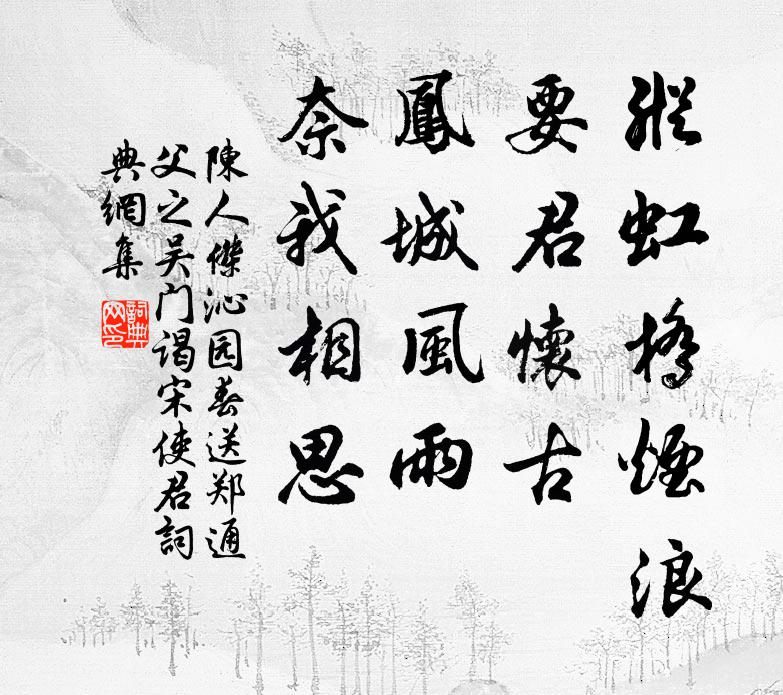 縱虹橋煙浪
要君懷古
鳳城風雨
奈我相思
陳人傑沁园春送郑通
父之吴门谒宋使君詞
典網集
詞典
网印